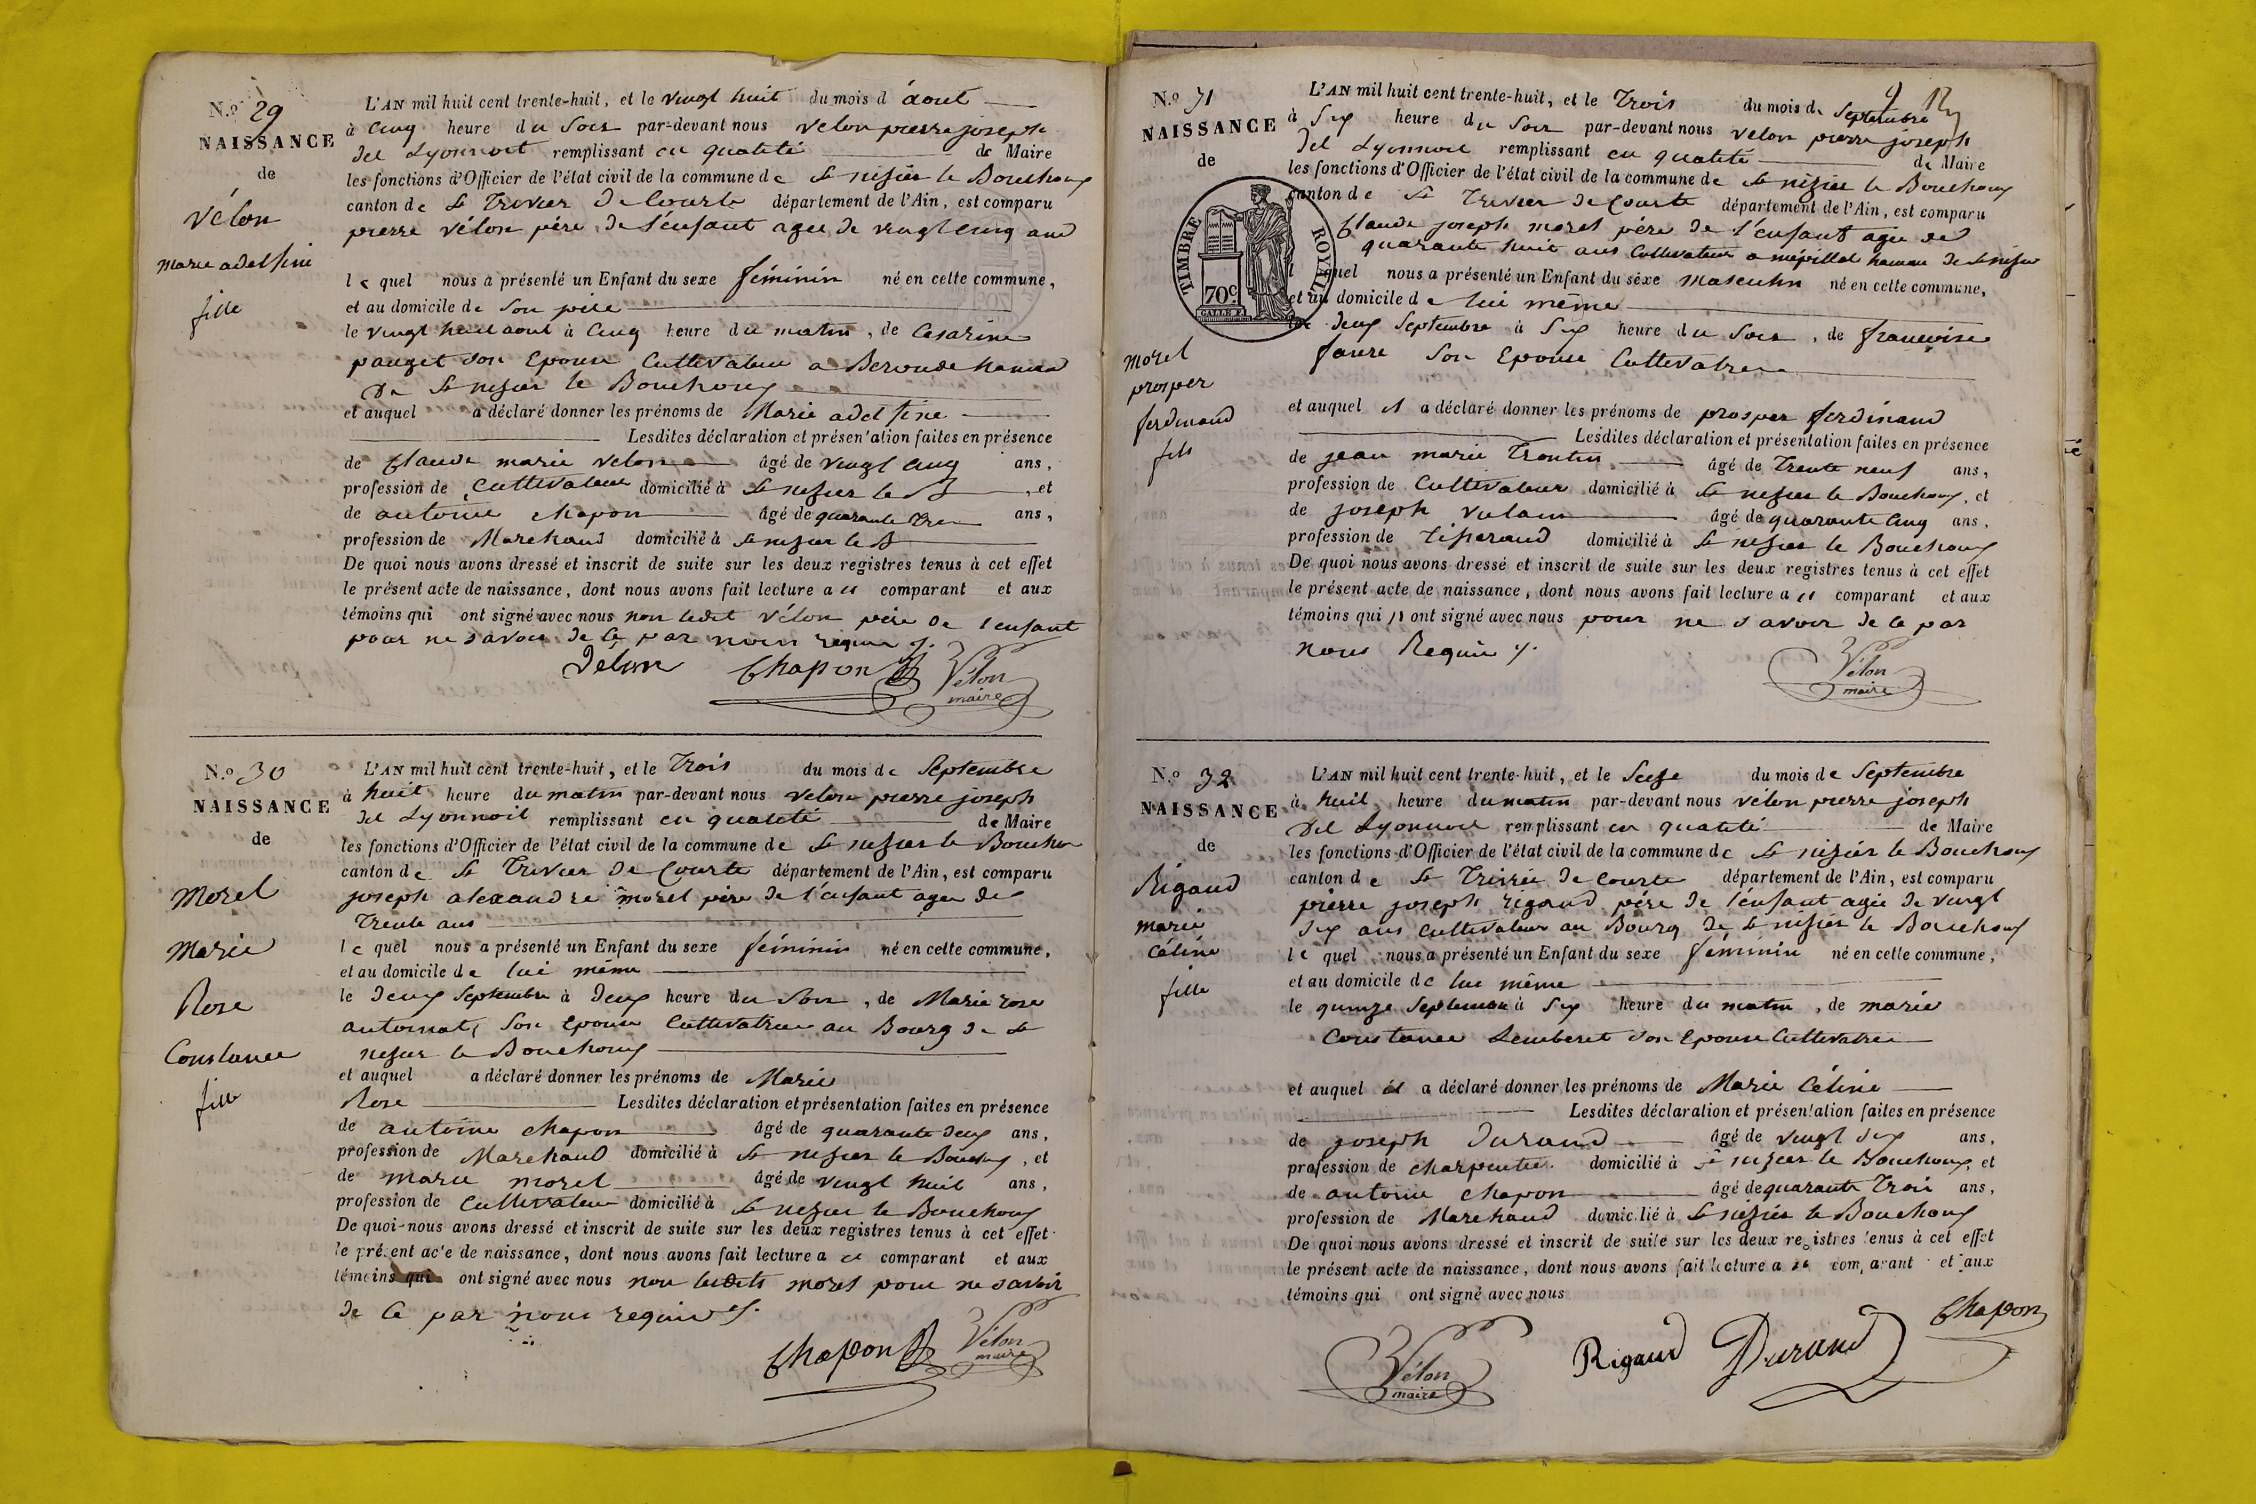 N.º 29
NAISSANCE
de
Vélon
marie adelfine
fille
L'AN mil huit cent trente-huit, et le vingt huit du mois d' aout
à cinq heure du soir par-devant nous velon pierre joseph
del Lyonnoit remplissant en qualité de Maire
les fonctions d'Officier de l'état civil de la commune de St nisier le Bouchoux
canton de St Trivier De Courte département de l'Ain, est comparu
pierre vélon père de l'enfant agée de vingt cinq ans
le quel nous a présenté un Enfant du sexe féminin né en cette commune,
et au domicile de son père
le vingt huit aout à cinq heure du matin, de Cesarine
pauget son Epouse Cultivateur a Beronde hameau
De St nisier le Bouchoux
et auquel a déclaré donner les prénoms de Marie adelfine
Lesdites déclaration et présentation faites en présence
de Claude marie velon âgé de vingt cinq ans,
profession de Cultivateur domicilié à St nisier le B , et
de antoine chapon âgé de quarante trois ans,
profession de Marchand domicilié à St nisier le B
De quoi nous avons dressé et inscrit de suite sur les deux registres tenus à cet effet
le présent acte de naissance, dont nous avons fait lecture a u comparant et aux
témoins qui ont signé avec nous non ledit vélon père de l'enfant
pour ne savoir de ce par nous requis
Vélon Chapon Vélon
maire
N.º 30
NAISSANCE
de
Morel
Marie
Rose
Constance
fille
L'AN mil huit cent trente-huit, et le Trois du mois de Septembre
à huit heure du matin par-devant nous vélon pierre joseph
del Lyonnoit remplissant en qualité de Maire
les fonctions d'Officier de l'état civil de la commune de St nisier le Bouchou
canton de St Trivier De Courte département de l'Ain, est comparu
joseph alexandre morel père de l'enfant agée de
Trente ans
le quel nous a présenté un Enfant du sexe féminin né en cette commune,
et au domicile de lui même
le deux Septembre à deux heure du Soir, de Marie rose
automat, Son Epouse Cultivatrice au Bourg de St
nisier le Bouchoux
et auquel a déclaré donner les prénoms de Marie
Rose Lesdites déclaration et présentation faites en présence
de antoine chapon âgé de quarante deux ans,
profession de Marchand domicilié à St nisier le Bouchoux, et
de marie morel âgé de vingt huit ans,
profession de Cultivateur domicilié à St nisier le Bouchoux
De quoi nous avons dressé et inscrit de suite sur les deux registres tenus à cet effet
le présent acte de naissance, dont nous avons fait lecture a u comparant et aux
témoins qui ont signé avec nous non lesdits morel pour ne savoir
de ce par nous requis
Chapon Vélon
maire
N.º 31
NAISSANCE
de
TIMBRE ROYAL
70c
morel
prosper
ferdinand
fils
L'AN mil huit cent trente-huit, et le Trois du mois de Septembre
à Six heure du Soir par-devant nous velon pierre joseph
del Lyonnoit remplissant en qualité de Maire
les fonctions d'Officier de l'état civil de la commune de St nizier le Bouchoux
canton de St Trivier De Courte département de l'Ain, est comparu
Claude joseph morel père de l'enfant agée de
quarante huit ans Cultivateur a mépillat hameau de St nisier
l quel nous a présenté un Enfant du sexe masculin né en cette commune,
et au domicile de lui même
le deux Septembre à Six heure du Soir, de francoise
faure Son Epouse Cultivatrice
et auquel il a déclaré donner les prénoms de prosper ferdinand
Lesdites déclaration et présentation faites en présence
de jean marie Trontin âgé de Trente neuf ans,
profession de Cultivateur domicilié à St nisier le Bouchoux, et
de joseph vulain âgé de quarante cinq ans,
profession de tisserand domicilié à St nisier le Bouchoux
De quoi nous avons dressé et inscrit de suite sur les deux registres tenus à cet effet
le présent acte de naissance, dont nous avons fait lecture a u comparant et aux
témoins qui n ont signé avec nous pour ne savoir de ce par
nous Requis
Vélon
maire
N.º 32
NAISSANCE
de
Rigaud
marie
Céline
fille
L'AN mil huit cent trente-huit, et le Seize du mois de Septembre
à huit heure du matin par-devant nous vélon pierre joseph
del Lyonnoit remplissant en qualité de Maire
les fonctions d'Officier de l'état civil de la commune de St nizier le Bouchoux
canton de St Trivier De Courte département de l'Ain, est comparu
pierre joseph rigaud père de l'enfant agée de vingt
Six ans cultivateur au Bourg de St nisier le Bouchoux
le quel nous a présenté un Enfant du sexe féminin né en cette commune,
et au domicile de lui même
le quinze Septembre à Six heure du matin, de marie
Constance Lemberet son Epouse Cultivatrice
et auquel il a déclaré donner les prénoms de Marie Céline
Lesdites déclaration et présentation faites en présence
de joseph Durand âgé de vingt six ans,
profession de charpentier domicilié à St nizier le Bouchoux, et
de antoine chapon âgé de quarante Trois ans,
profession de Marchand domicilié à St nizier le Bouchoux
De quoi nous avons dressé et inscrit de suite sur les deux registres tenus à cet effet
le présent acte de naissance, dont nous avons fait lecture a u comparant et aux
témoins qui ont signé avec nous
Chapon
Vélon Rigaud Durand
maire